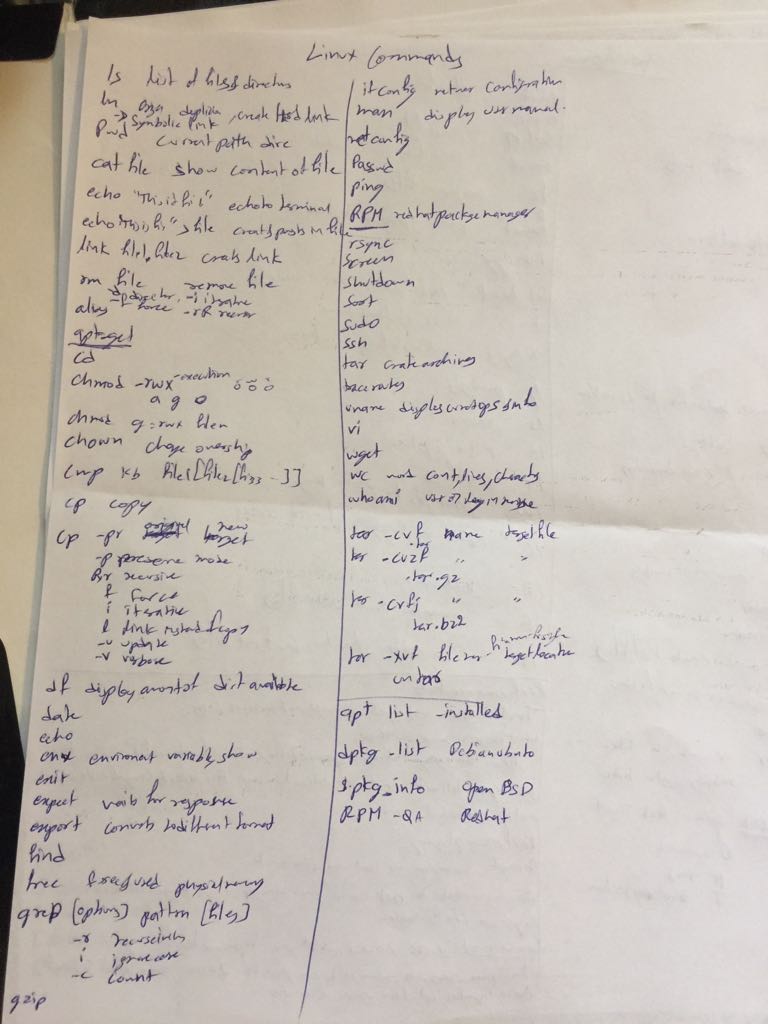 Linux Commands
ls list of files & directories
ln → create Hard link
Symbolic link
Pwd current path dire
cat file show content of file
echo "This is file" echo to terminal
echo "This is" > file creat & posts in file
link file1, file2 creats link
rm file remove file
-f force -rR recur
alias
apt-get
cd
chmod -rwx -execution
a g o
chmod g=rwx filen
chown chage ownership
cmp kb file1 [file2 [
cp copy
cp -pr original new target
-p preserve mode
Rr recursive
f Force
i iterative
l link instead of copy
-u update
-v verbose
df display amont of disk available
date
echo
env environat variable, show
exit
expect waits for response
export converts to different format
find
free free & used physical memory
grep [options] pattern [files]
-r recursively
i ignore case
-c count
gzip
ifconfig networ configuration
man display user manual.
netconfig
Passwd
ping
RPM redhat package manager
rsync
screen
shutdown
sort
sudo
ssh
tar crate archives
uname
vi
wget
wc word cont, lines, characters
whoami
tar -cvf name target file
tar -cvzf " "
.tar.gz
tar -cvfj " "
tar.bz2
tar -xvf target locatine
untar
apt list -installed
dpkg -list Debian ubuto
pkg_info Open BSD
RPM -QA Redhat